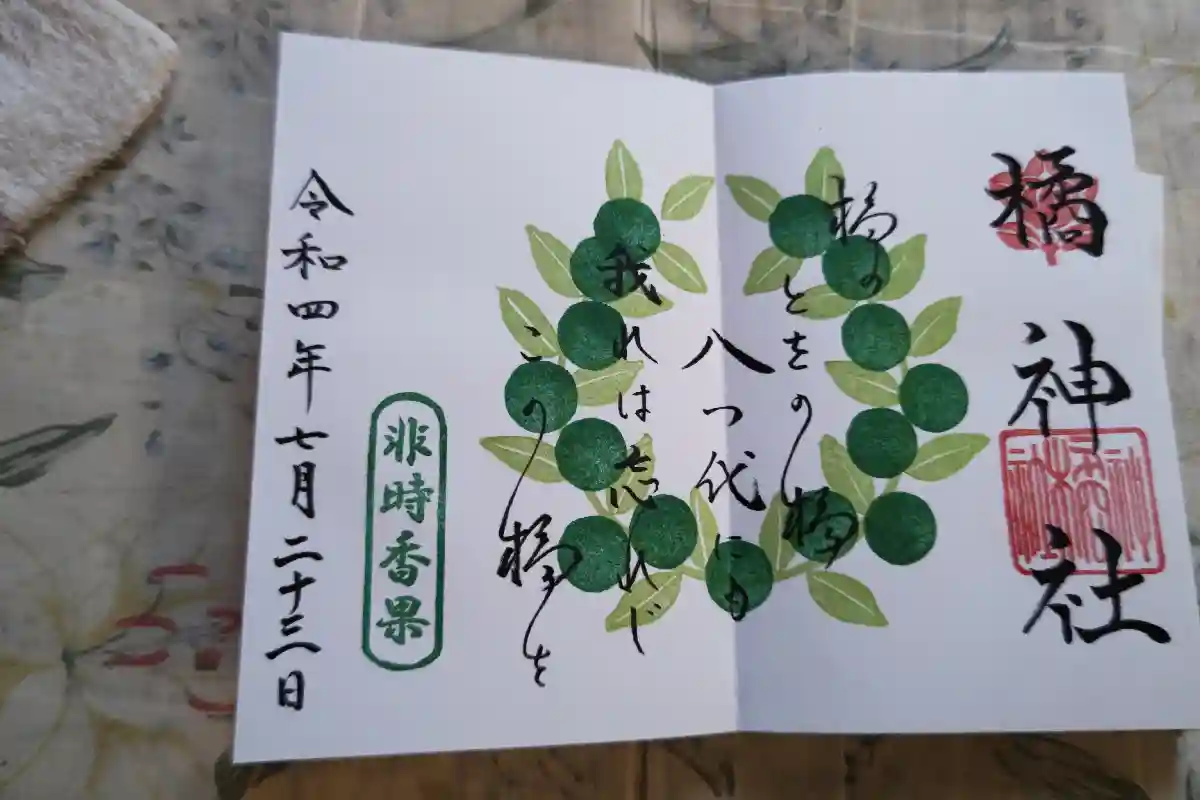 橘神社
橘の
とをの橘
八つ代にも
我れは忘れじ
この橘を
非時香果
令和四年七月二十三日